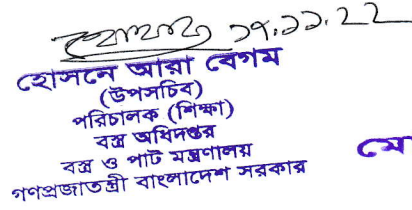 ২৭.১১.22
হোসনে আরা বেগম
(উপসচিব)
পরিচালক (শিক্ষা)
বস্ত্র অধিদপ্তর
বস্ত্র ও পাট মন্ত্রণালয়
গণপ্রজাতন্ত্রী বাংলাদেশ সরকার
মে